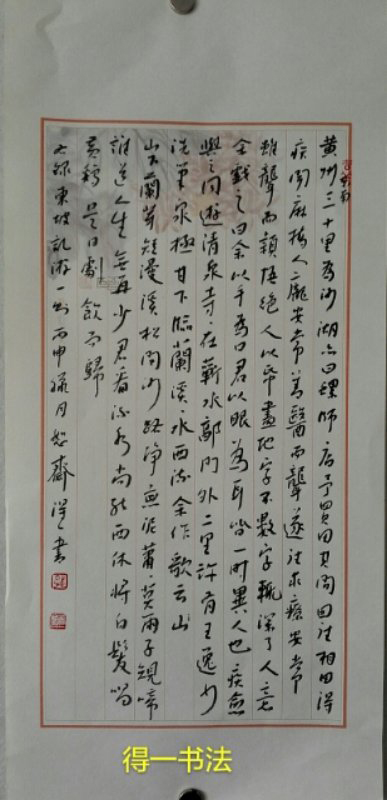 黄州三十里为沙湖亦曰螺师店予买田其间因往相田得
疾闻麻桥人庞安常善医而聋遂往求疗安常
虽聋而颖悟绝人以纸画地字不数字辄深了人意
余戏之曰余以手为口君以眼为耳皆一时异人也疾愈
与之同游清泉寺寺在蕲水郭门外二里许有王逸少
洗笔泉极甘下临兰溪水西流余作歌云山
山下兰芽短浸溪松间沙路净无泥萧萧暮雨子规啼
谁道人生无再少君看流水尚能西休将白发唱
黄鸡是日剧饮而归
右录东坡记游一则丙申
得一书法